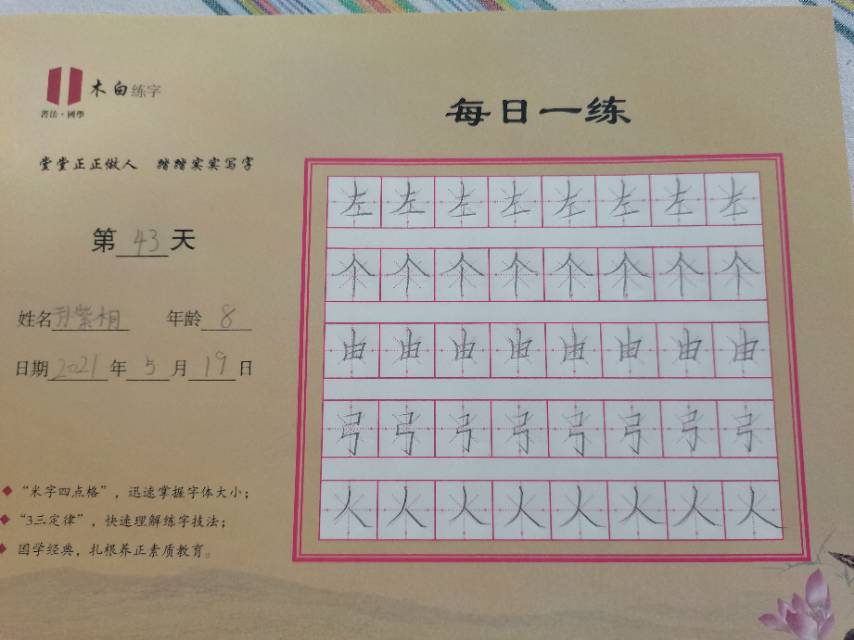 木白练字
書法·國學
每日一练
堂堂正正做人 踏踏实实写字
第43天
姓名孙紫桐 年龄8
日期2021年5月19日
左左左左左左左左
个个个个个个个个
由由由由由由由由
弓弓弓弓弓弓弓弓
人人人人人人人人
“米字四点格”，迅速掌握字体大小；
“3三定律”，快速理解练字技法；
国学经典，扎根养正素质教育。